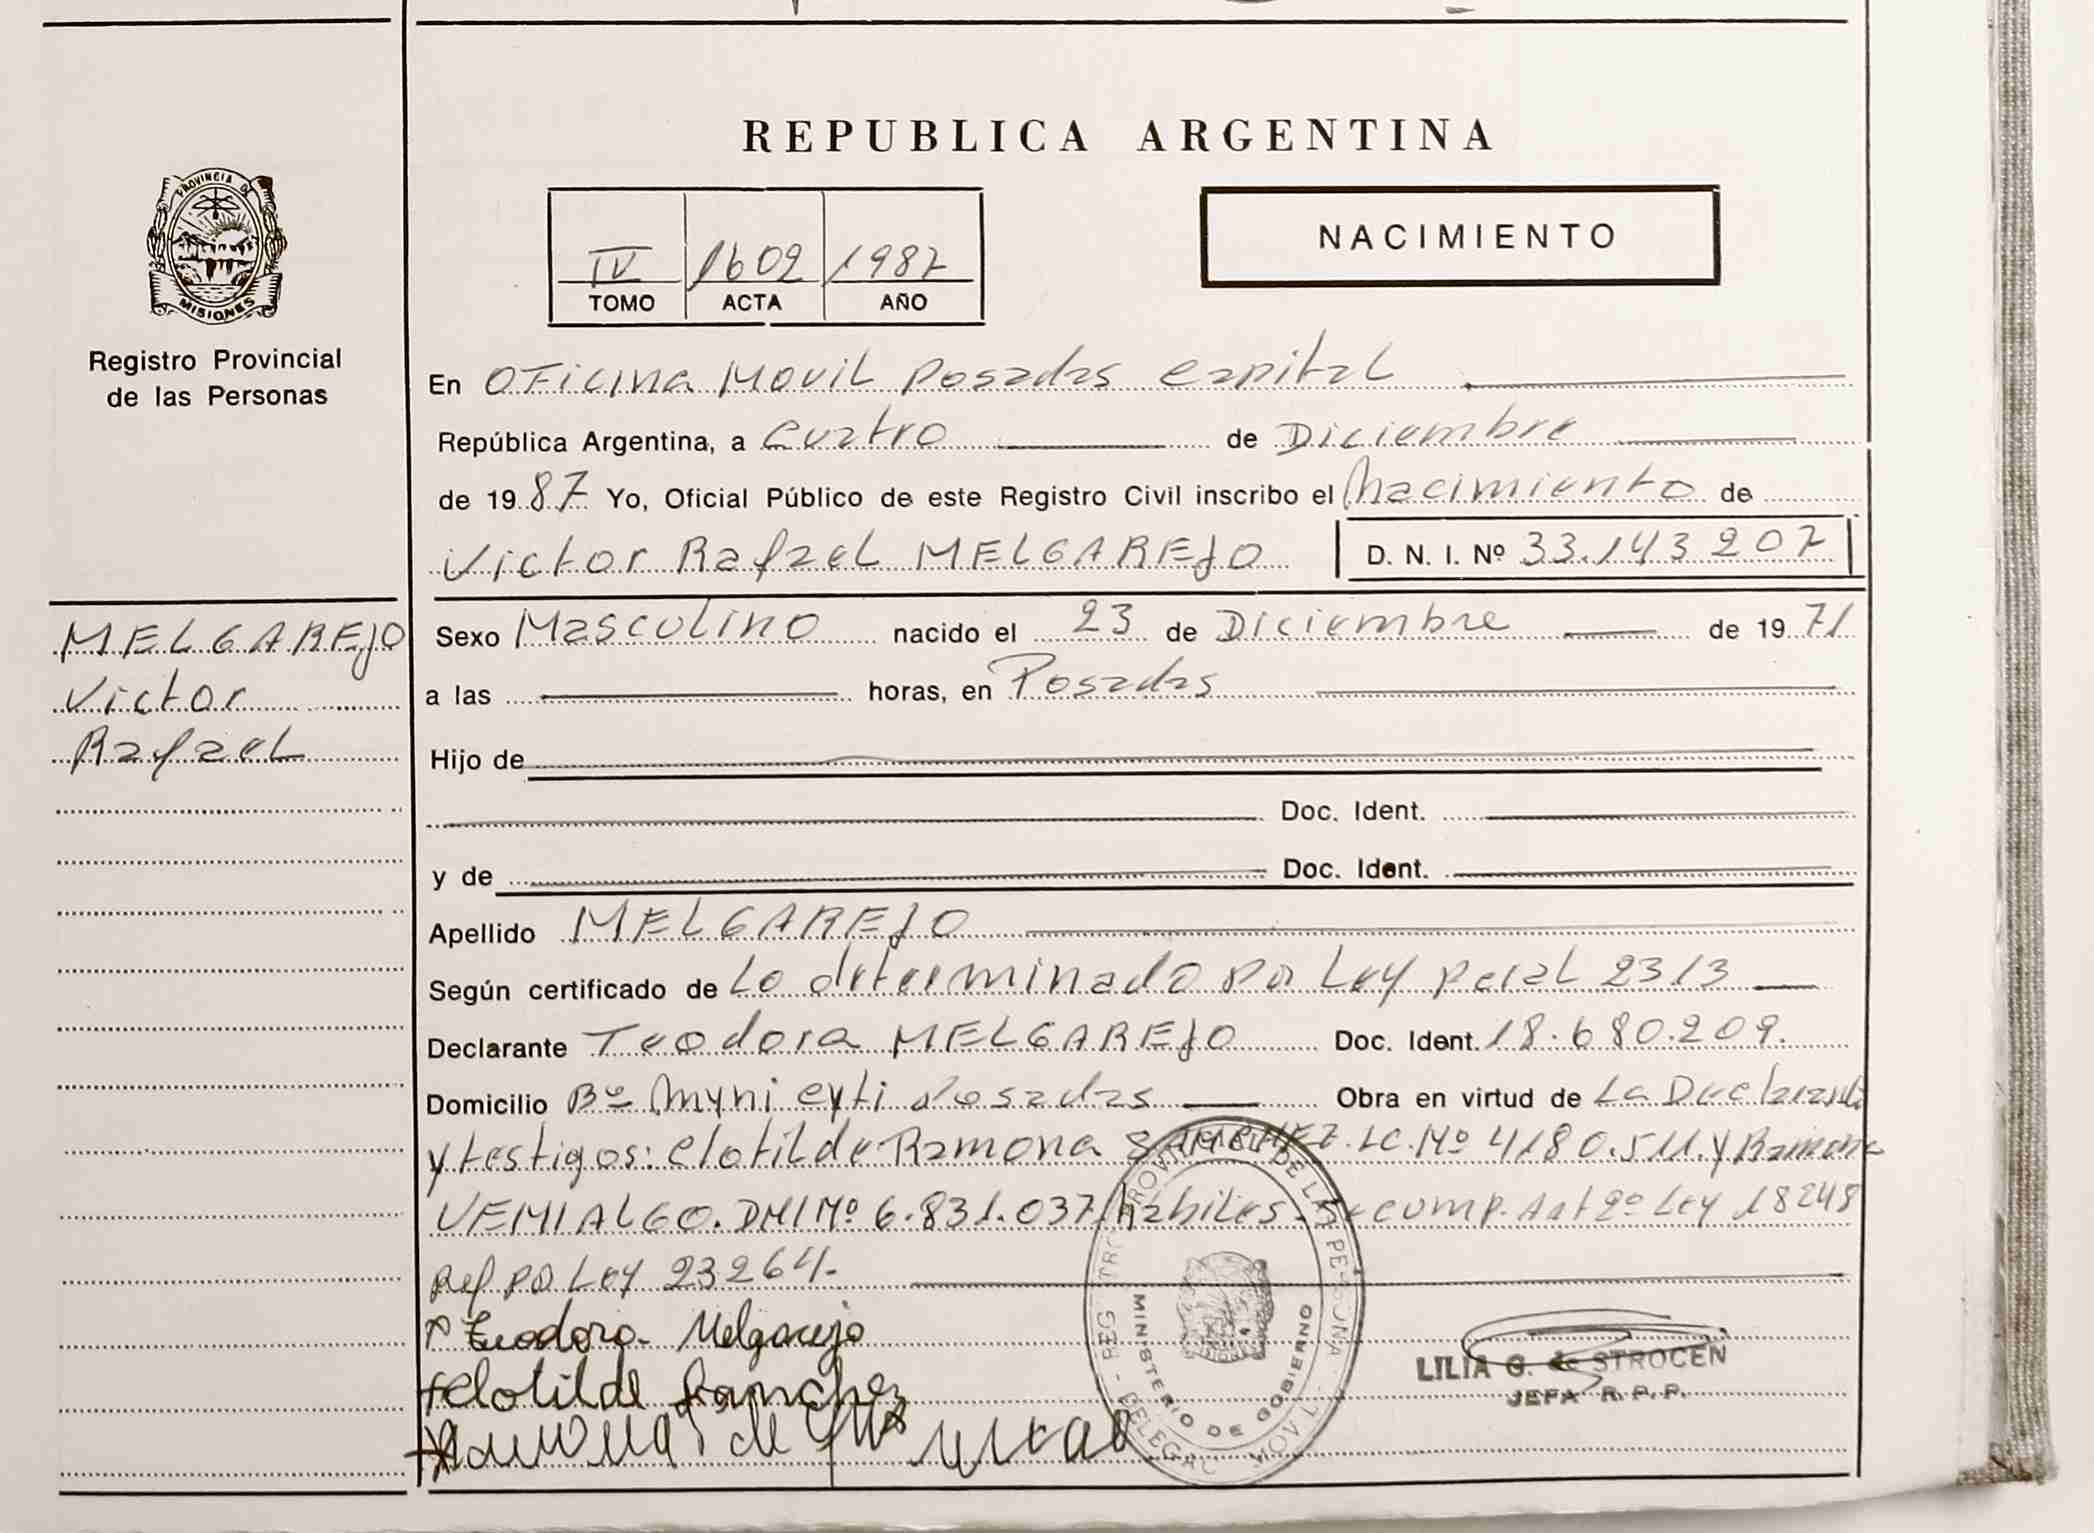 REPUBLICA ARGENTINA
PROVINCIA DE
MISIONES
Registro Provincial
de las Personas
IV 1602 1987
TOMO ACTA AÑO
NACIMIENTO
En OFicina Movil Posadas Capital
República Argentina, a Cuatro de Diciembre
de 19 87 Yo, Oficial Público de este Registro Civil inscribo el Nacimiento de
Victor Rafael MELGAREJO D. N. I. Nº 33.143 207
MELGAREJO
Victor
Rafael
Sexo Masculino nacido el 23 de Diciembre de 19 71
a las horas, en Posadas
Hijo de
Doc. Ident.
y de Doc. Ident.
Apellido MELGAREJO
Según certificado de Lo determinado por Ley pcial 2313
Declarante Teodora MELGAREJO Doc. Ident. 18.680.209.
Domicilio Bº Posadas Obra en virtud de La Declarante
y testigos: Clotilde Ramona SANCHEZ. LC. Nº 4180.511. y Ramona
VENIALGO. DNI Nº 6.831.037 hábiles. Se cump. Art 2º Ley 18248
Ref. po Ley 23264.
Teodora Melgarejo
Clotilde Sanchez
REGISTRO PROVINCIAL DE LAS PERSONAS
MINISTERIO DE GOBIERNO
DELEGAC MOVIL
LILIA G. de STROCEN
JEFA R. P. P.